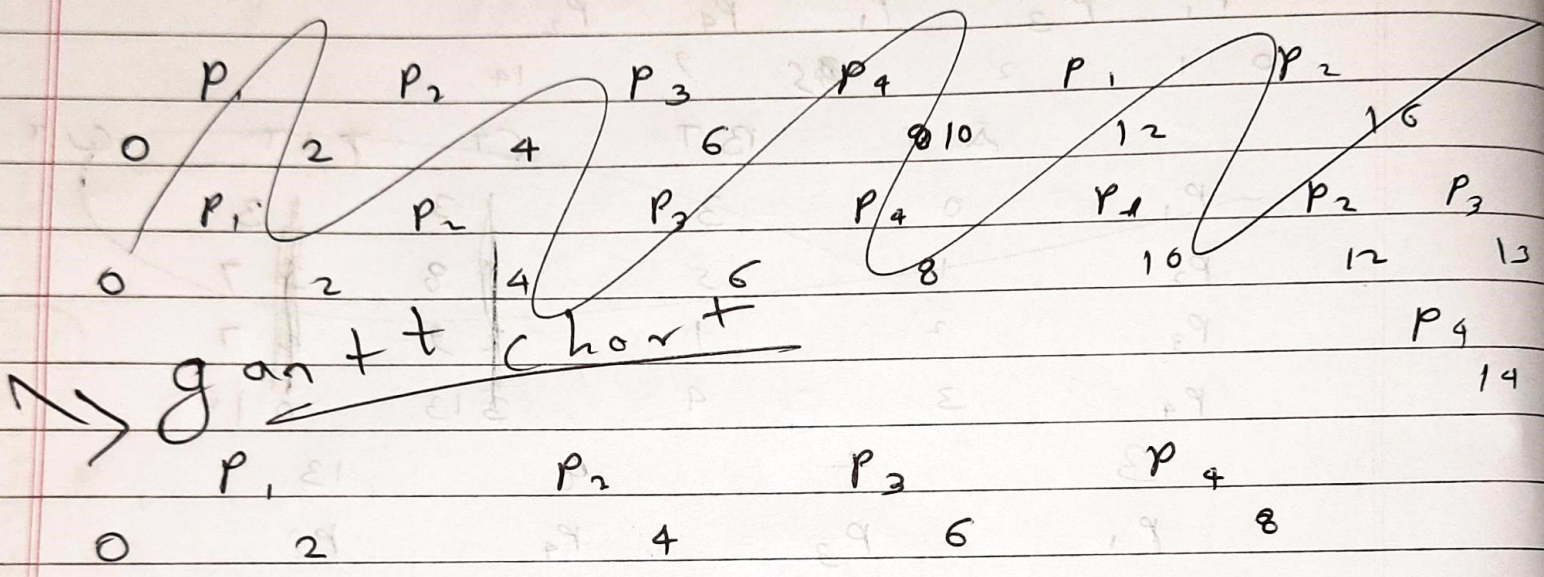 P1 P2 P3 P4 P1 P2
0 2 4 6 10 12 16
P1 P2 P3 P4 P1 P2 P3
0 2 4 6 8 10 12 13
P4
14
gantt chart
P1 P2 P3 P4
0 2 4 6 8